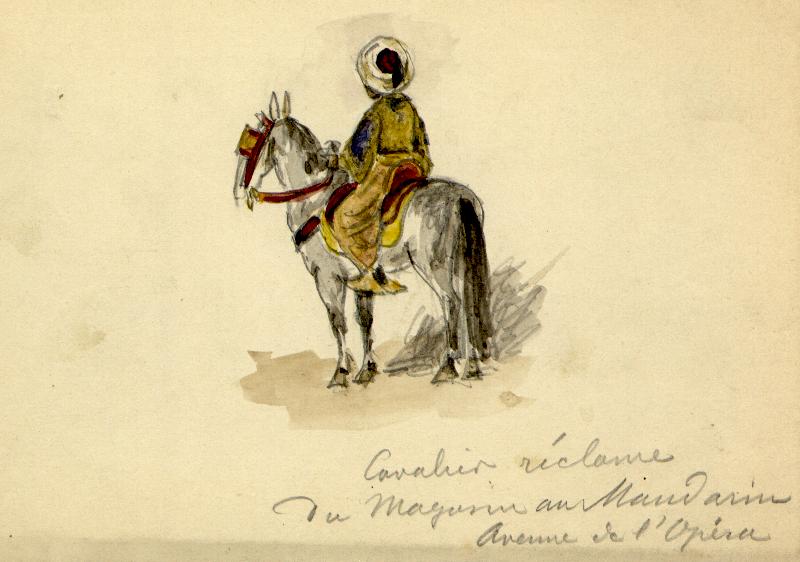 Cavalier réclame
du Magasin au Mandarin
Avenue de l'Opéra